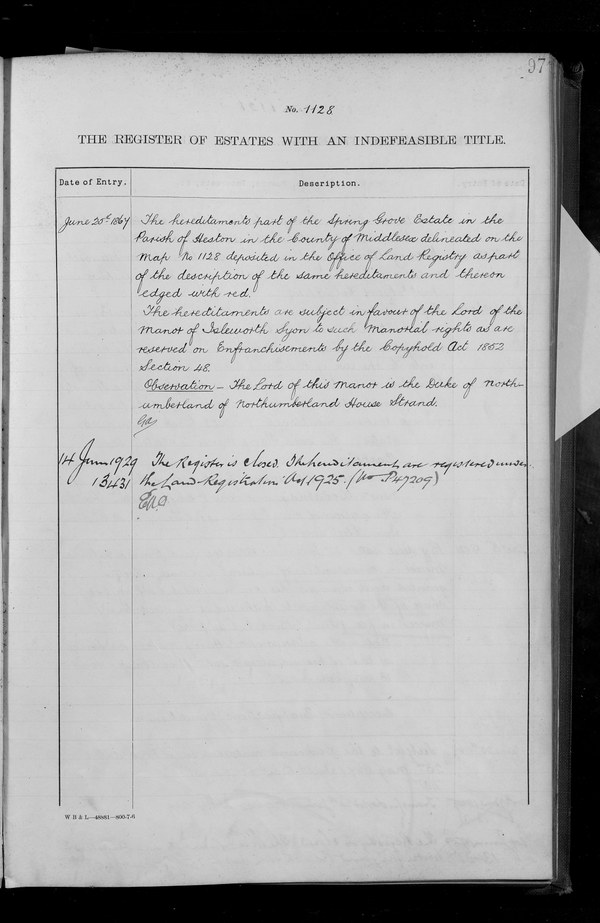 97
No. 1128
THE REGISTER OF ESTATES WITH AN INDEFEASIBLE TITLE.
Date of Entry.
Description.
June 20th 1867
The hereditaments part of the Spring Grove Estate in the
Parish of Heston in the County of Middlesex delineated on the
Map No 1128 deposited in the Office of Land Registry as part
of the description of the same hereditaments and thereon
edged with red.
The hereditaments are subject in favour of the Lord of the
Manor of Isleworth Syon to such Manorial rights as are
reserved on Enfranchisements by the Copyhold Act 1852
Section 48.
Observation – The Lord of this Manor is the Duke of North-
umberland of Northumberland House Strand.
14 June 1929
The Register is closed. The hereditaments are registered under
13431
the Land Registration Act 1925. (No P47209)
W B & L—48881—800-7-6